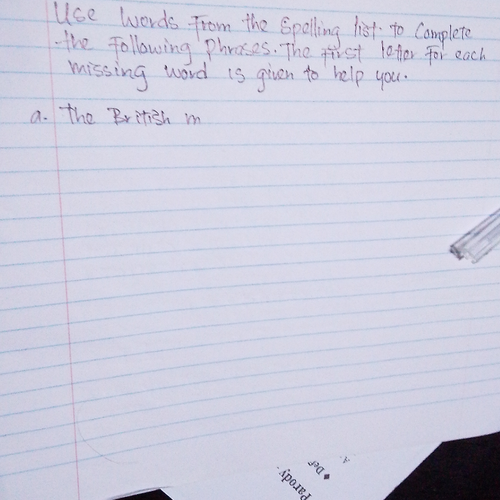 Use words from the Spelling list to Complete
the following phrases. The first letter for each
missing word is given to help you.
a. The British m
Parody.
• Def
A